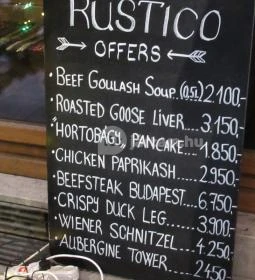 RUSTICO
OFFERS
• BEEF GOULASH SOUP..(0,5L) 2.100,-
• ROASTED GOOSE LIVER... 3.150,-
• HORTOBÁGY PANCAKE... 1.850,-
• CHICKEN PAPRIKASH... 2.950,-
• BEEFSTEAK BUDAPEST... 6.750,-
• CRISPY DUCK LEG... 3.900,-
• WIENER SCHNITZEL... 4.250,-
• AUBERGINE TOWER... 2.450,-